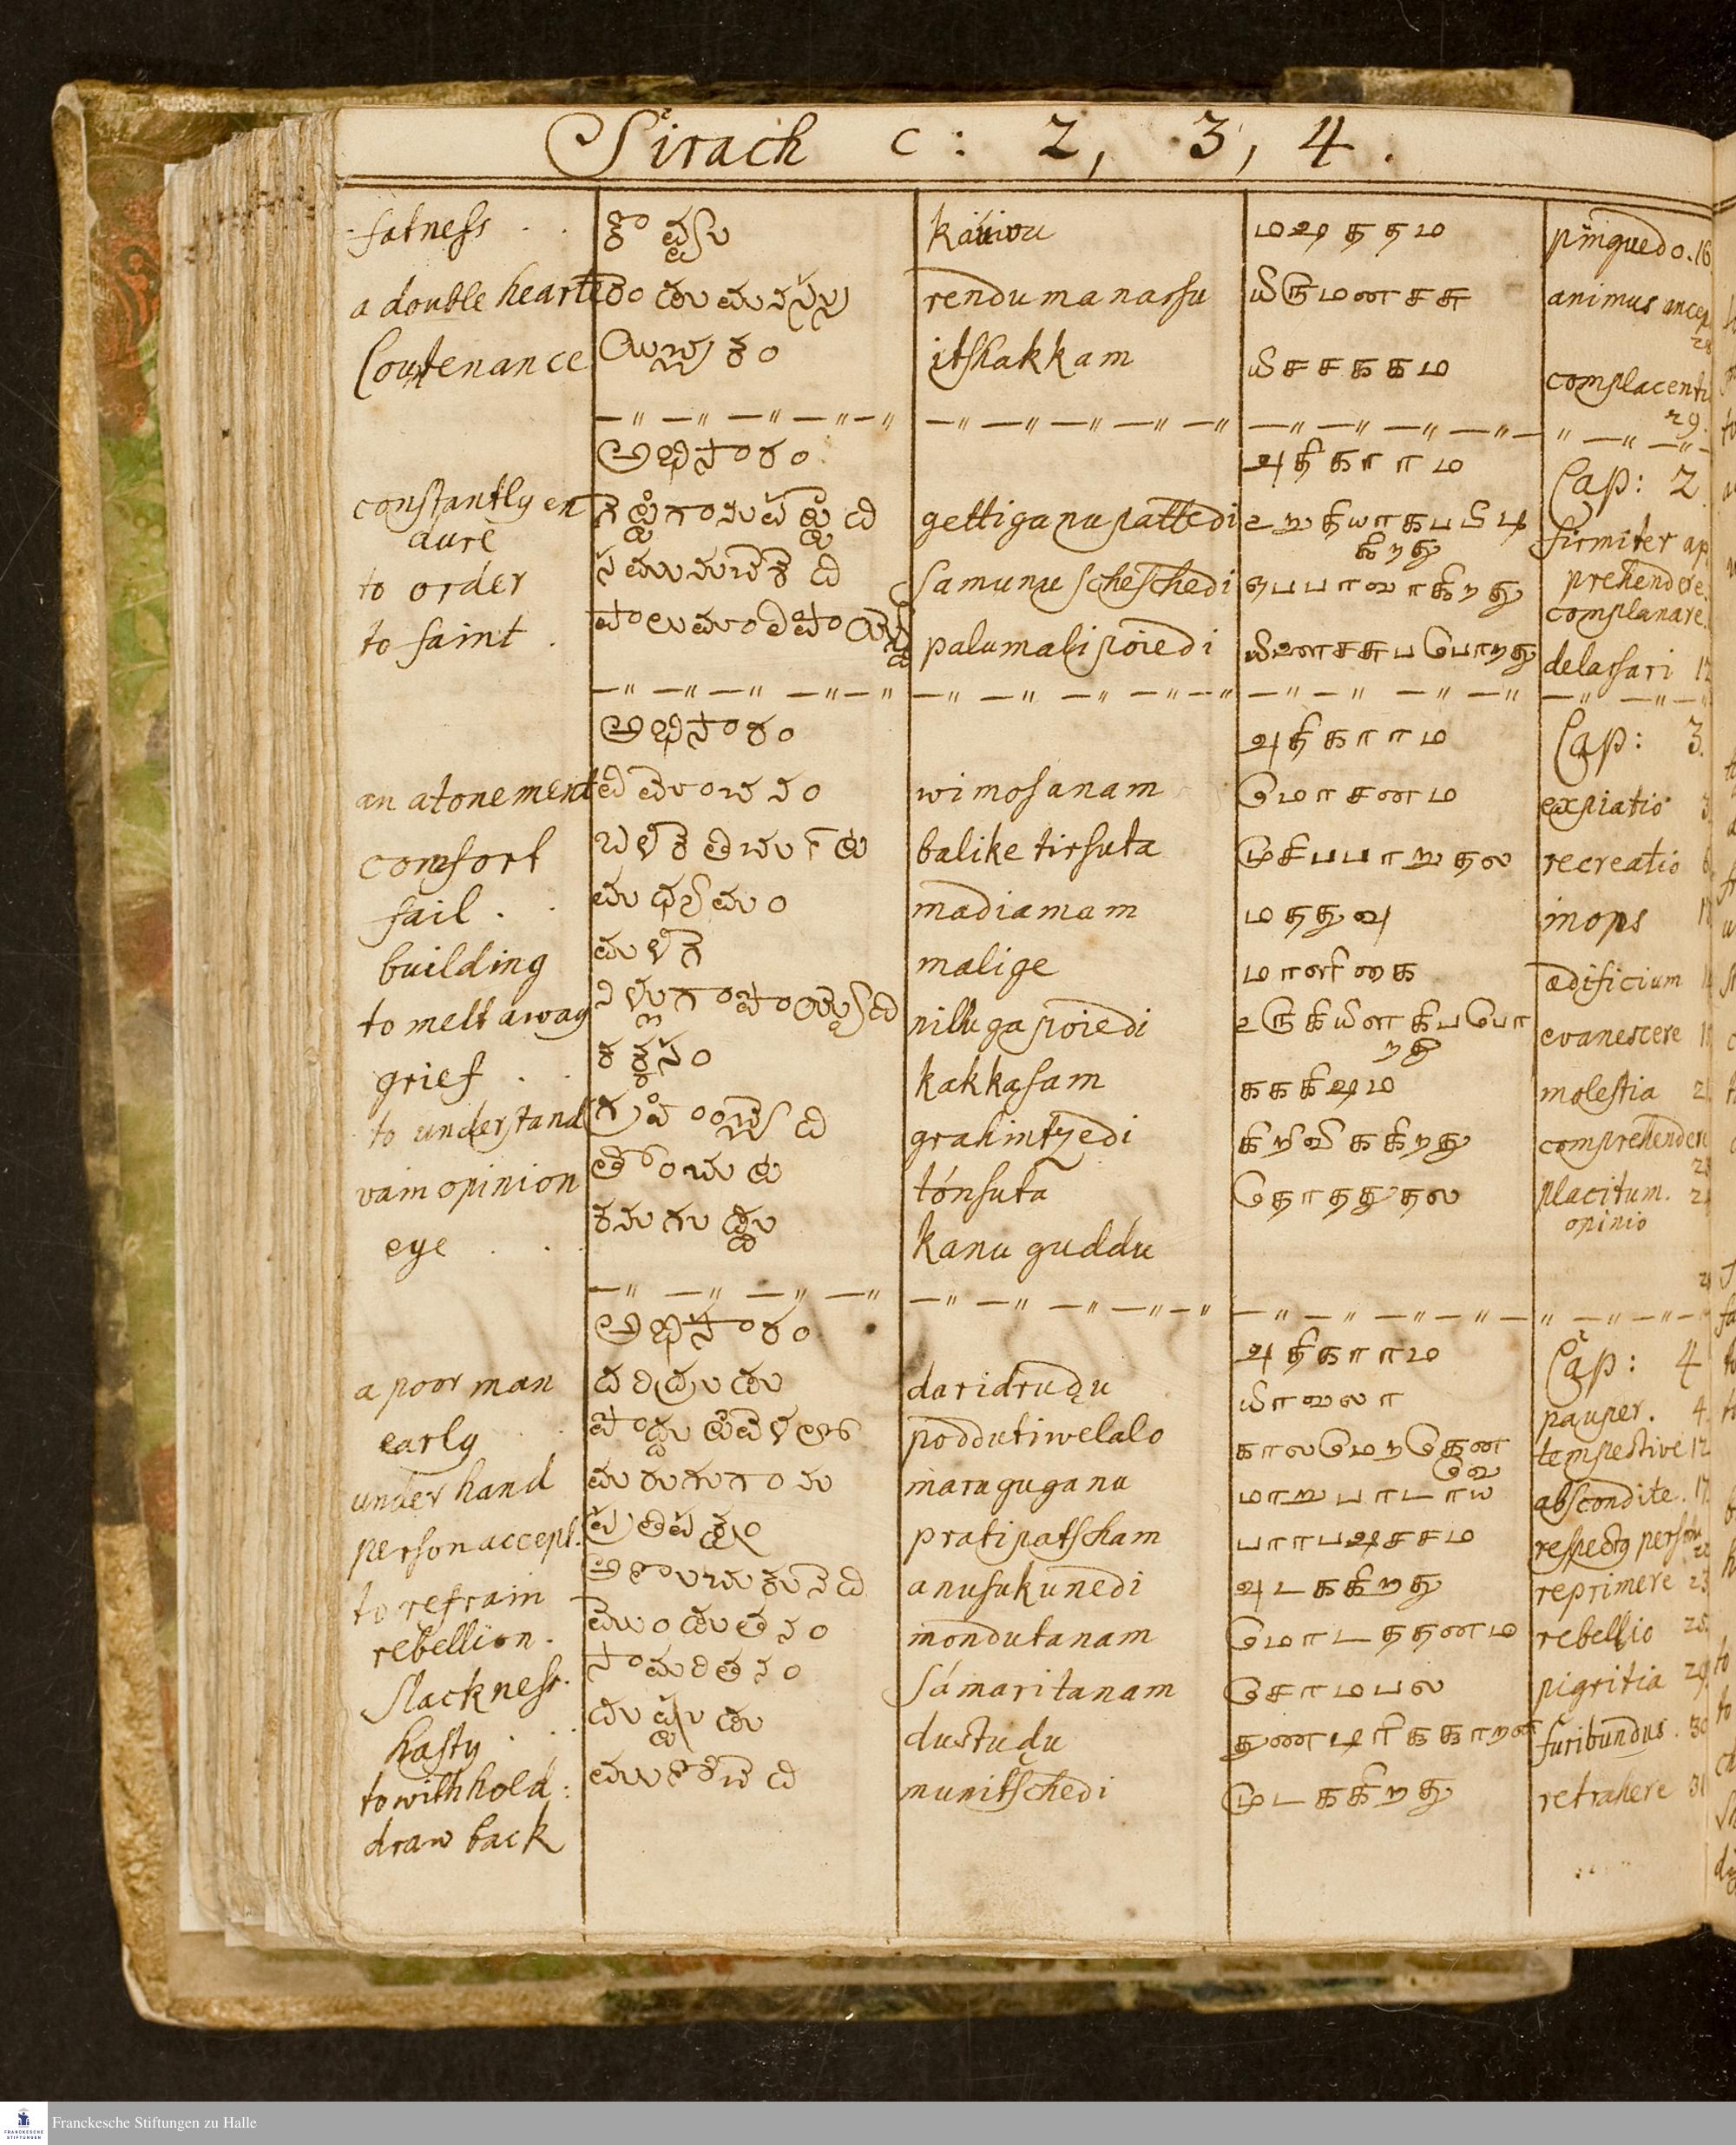 Sirach c: 2, 3, 4.
fatness . . kāuivu மஷததம pinguedo. 16
a double heart రెండుమనస్సు rendu manassu யிருமனசசு animus ancep
28
Coutenance యిచ్చకం itshakkam யிசசககம complacenti
29.
అధికారం அதிகாரம Cap: 2
constantly en గెట్టిగానుపట్టేది gettiganu pattedi உறுதியாகபபிடி firmiter ap
dure கிறது prehendere.
to order సమునుచెశేది samunu scheschedi ஒபபரவாகிறது complanare.
to faint . పాలుమాలిపొయ్యేది palumali poiedi யிளைசசுபபோறது delassari 12
అధికారం அதிகாரம Cap: 3.
an atonement విమోచనం wimosanam மோசனம expiatio 3
comfort బళికెతిర్చుట balike tirsuta முசிபபாறுதல recreatio 6
fail . . మధ్యమం madiamam மததுவ inops
building మళిగె malige மாளிகை ædificium
to melt away nilluga poiedi உருகியிளகிபபோ evanescere
றது
grief . . కక్కసం kakkasam கககிஷம molestia 2
to understand గ్రహించ్చేది grahintzedi கிறிவிககிறது comprehendere
vain opinion తోంచుట tónsuta தோததுதல placitum.
opinio
eye . . కనుగుడ్డు kanu guddu
అధికారం அதிகாரம Cap: 4
a poor man దరిద్రుడు daridrudu யிரவலர pauper. 4.
early . . పొద్దుటివెళలో poddutiwelalo காலமேறகென tempestive 12
வே
under hand మరుగుగాను maraguganu மாறுபாடாய abscondite. 17
person accept. ప్రతిపక్షం pratipatscham பாரபஷசசம respectg person
to refrain అణుచుకునెది anusukunedi அடககிறது reprimere 23
rebellion . మొండుతనం mondutanam மோடததனம rebellio 25.
Slackness. సొమరితనం sámaritanam சோமபல pigritia 29
hasty . . దుష్టుడు dustudu துணடரிககாறன furibundus . 30
to withhold : మునిచెది munitschedi முடககிறது retrahere 31
draw back
Franckesche Stiftungen zu Halle